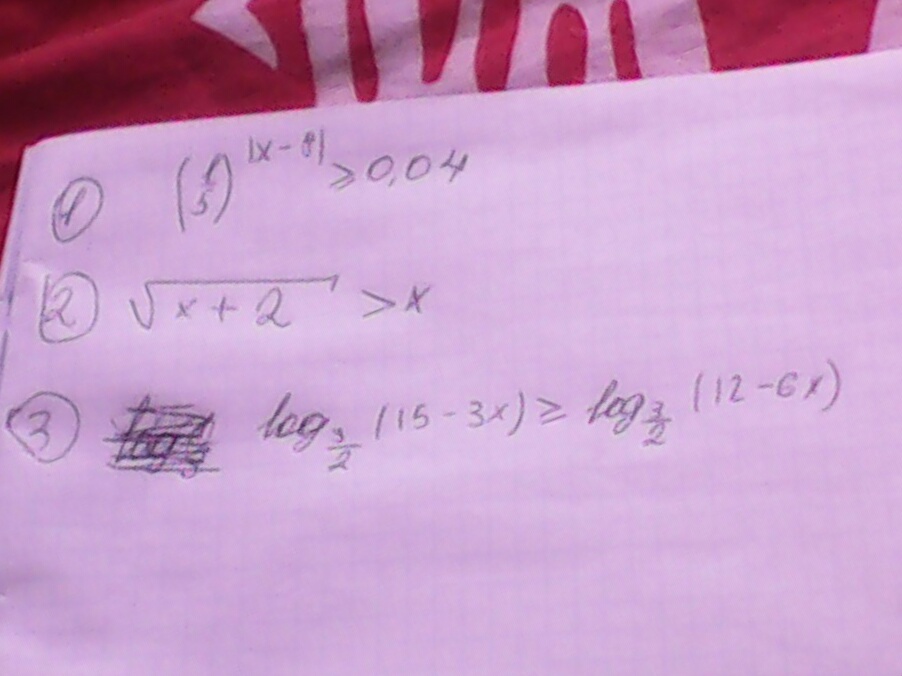 ① (1/5)^|x-1| ≥ 0,04
② √(x+2) > x
③ log_{3/2} (15-3x) ≥ log_{3/2} (12-6x)